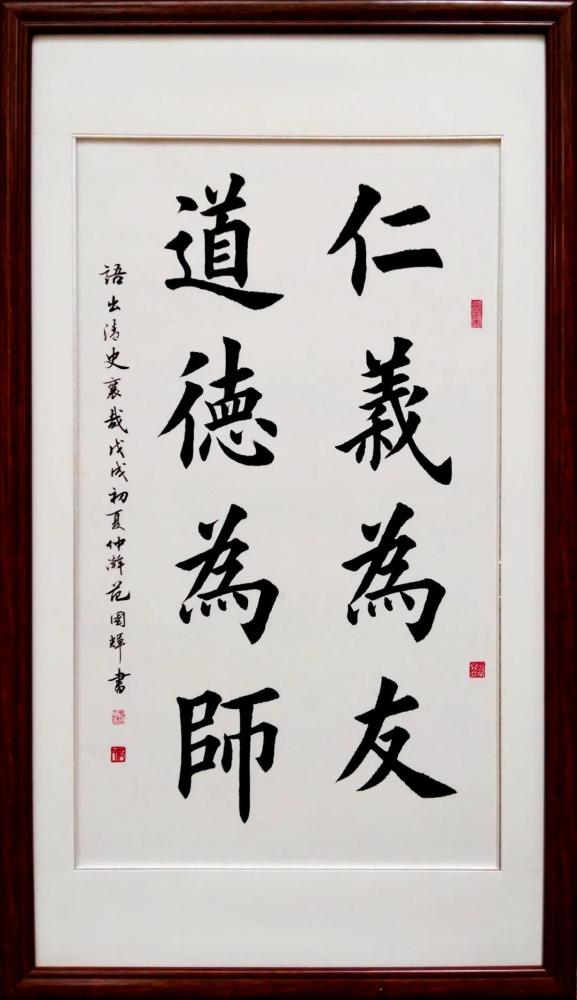 仁義為友
道德為師
語出清史襄哉戊戌初夏仲澣范國輝書